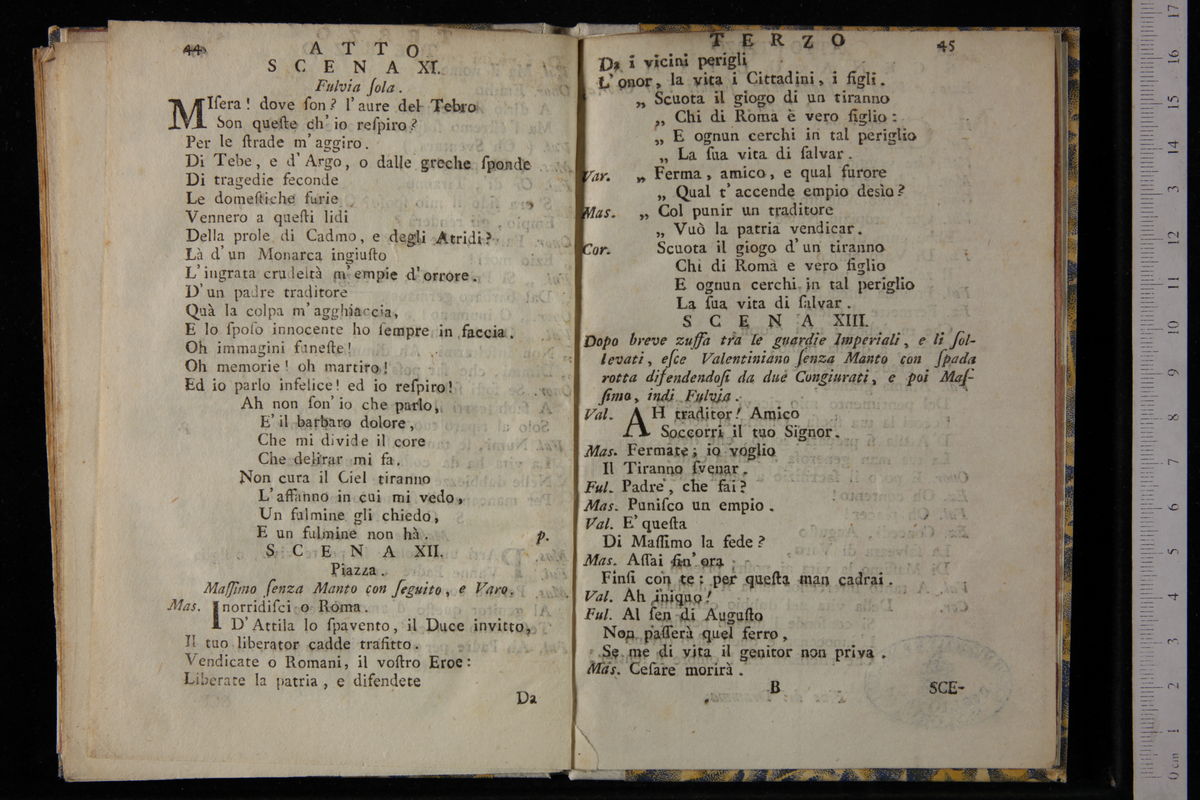 44 ATTO
SCENA XI.
Fulvia ſola.
MIſera! dove ſon? l'aure del Tebro
Son queſte ch'io reſpiro?
Per le ſtrade m'aggiro.
Di Tebe, e d'Argo, o dalle greche ſponde
Di tragedie feconde
Le domeſtiche furie
Vennero a queſti lidi
Della prole di Cadmo, e degli Atridi?
Là d'un Monarca ingiuſto
L'ingrata crudeltà m'empie d'orrore.
D'un padre traditore
Quà la colpa m'agghiaccia,
E lo ſpoſo innocente ho ſempre in faccia.
Oh immagini funeſte!
Oh memorie! oh martiro!
Ed io parlo infelice! ed io reſpiro!
Ah non ſon'io che parlo,
E'il barbaro dolore,
Che mi divide il core
Che delirar mi fa.
Non cura il Ciel tiranno
L'affanno in cui mi vedo,
Un fulmine gli chiedo,
E un fulmine non hà. p.
SCENA XII.
Piazza.
Maſſimo ſenza Manto con ſeguito, e Varo.
Mas. Inorridiſci o Roma.
D'Attila lo ſpavento, il Duce invitto,
Il tuo liberator cadde trafitto.
Vendicate o Romani, il voſtro Eroe:
Liberate la patria, e difendete
Da
TERZO 45
Da i vicini perigli
L'onor, la vita i Cittadini, i figli.
„ Scuota il giogo di un tiranno
„ Chi di Roma è vero figlio:
„ E ognun cerchi in tal periglio
„ La ſua vita di ſalvar.
Var. „ Ferma, amico, e qual furore
„ Qual t'accende empio desìo?
Mas. „ Col punir un traditore
„ Vuò la patria vendicar.
Cor. Scuota il giogo d'un tiranno
Chi di Roma e vero figlio
E ognun cerchi in tal periglio
La ſua vita di ſalvar.
SCENA XIII.
Dopo breve zuffa tra le guardie Imperiali, e li ſol-
levati, eſce Valentiniano ſenza Manto con ſpada
rotta difendendoſi da due Congiurati, e poi Maſ-
ſimo, indi Fulvia.
Val. AH traditor! Amico
Soccorri il tuo Signor.
Mas. Fermate; io voglio
Il Tiranno ſvenar.
Ful. Padre, che fai?
Mas. Puniſco un empio.
Val. E'queſta
Di Maſſimo la fede?
Mas. Aſſai ſin'ora
Finſi con te: per queſta man cadrai.
Val. Ah iniquo!
Ful. Al ſen di Auguſto
Non paſſerà quel ferro,
Se me di vita il genitor non priva.
Mas. Ceſare morirà.
B SCE-
0 cm 1 2 3 4 5 6 7 8 9 10 11 12 13 14 15 16 17